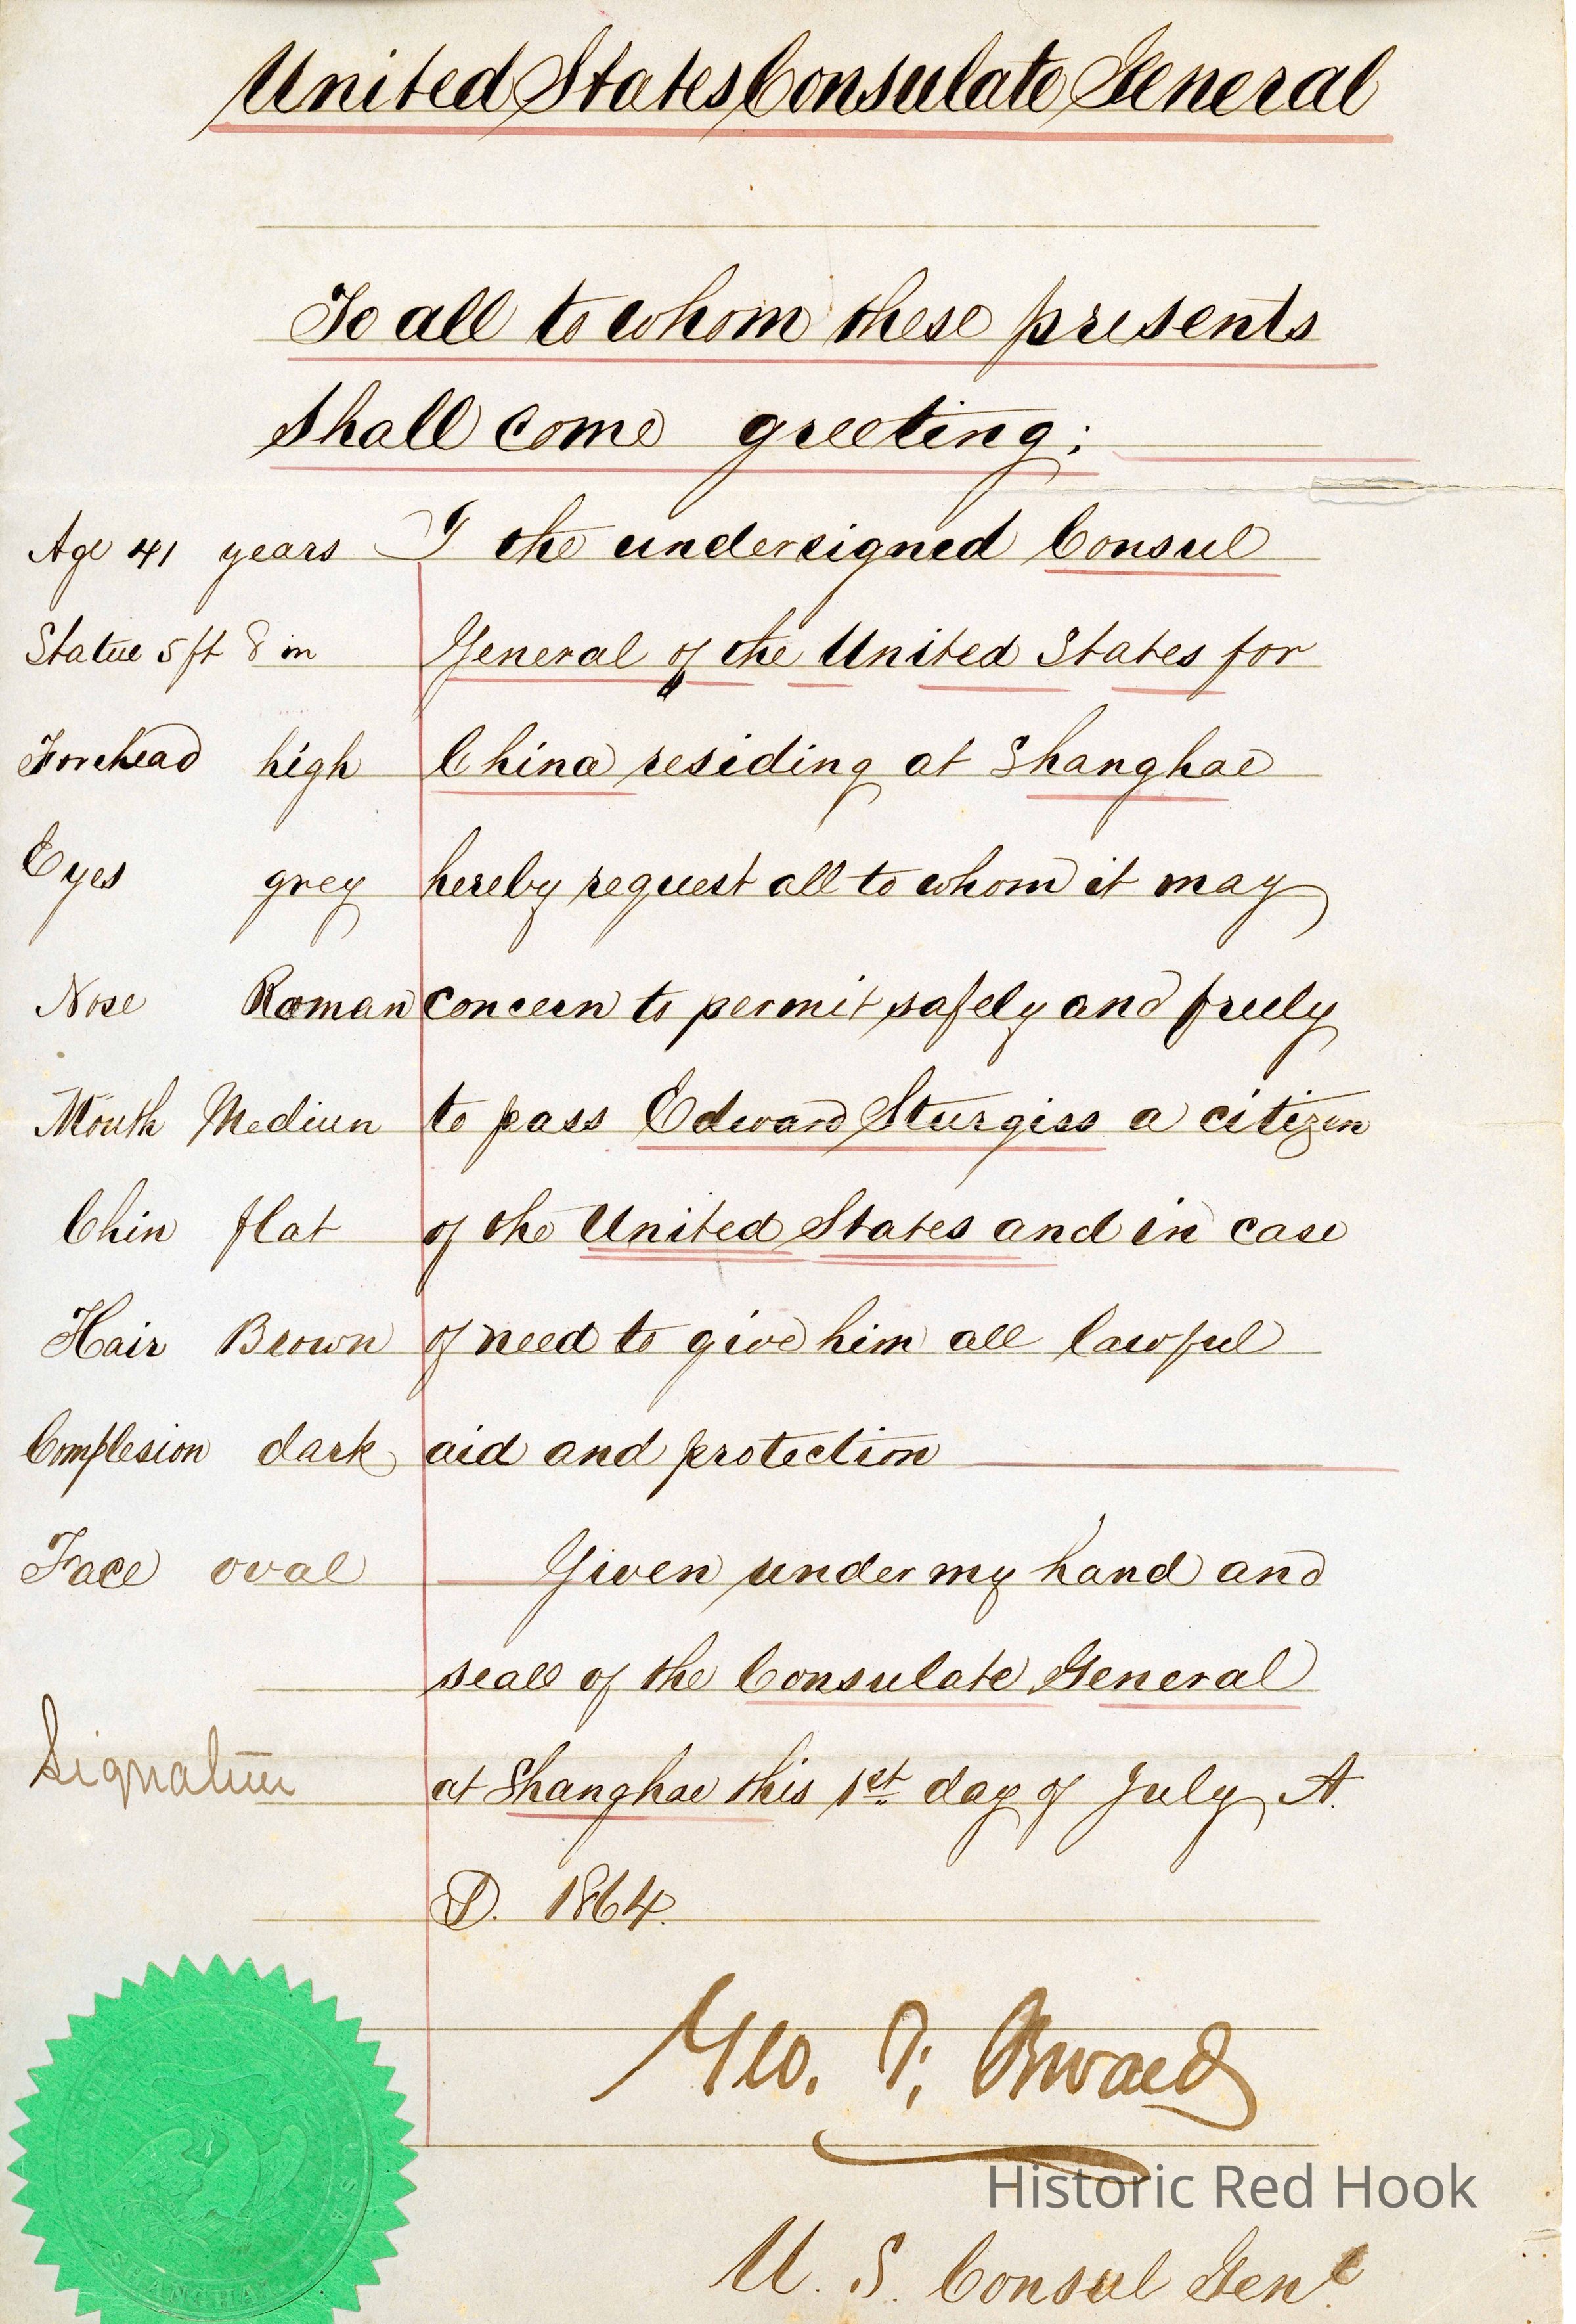 United States Consulate General
To all to whom these presents
shall come greeting;
Age 41 years
I the undersigned Consul
Statue 5 ft 8 in
General of the United States for
Forehead high
China residing at Shanghae
Eyes grey
hereby request all to whom it may
Nose Roman
concern to permit safely and freely
Mouth Mediun
to pass Edward Sturgiss a citizen
Chin flat
of the United States and in case
Hair Brown
of need to give him all lawful
Complesion dark
aid and protection
Face oval
Given under my hand and
seall of the Consulate General
Signature
at Shanghae this 1st day of July A.
D. 1864.
Geo. F. Seward
Historic Red Hook
U. S. Consul Genl
SHANGHAI